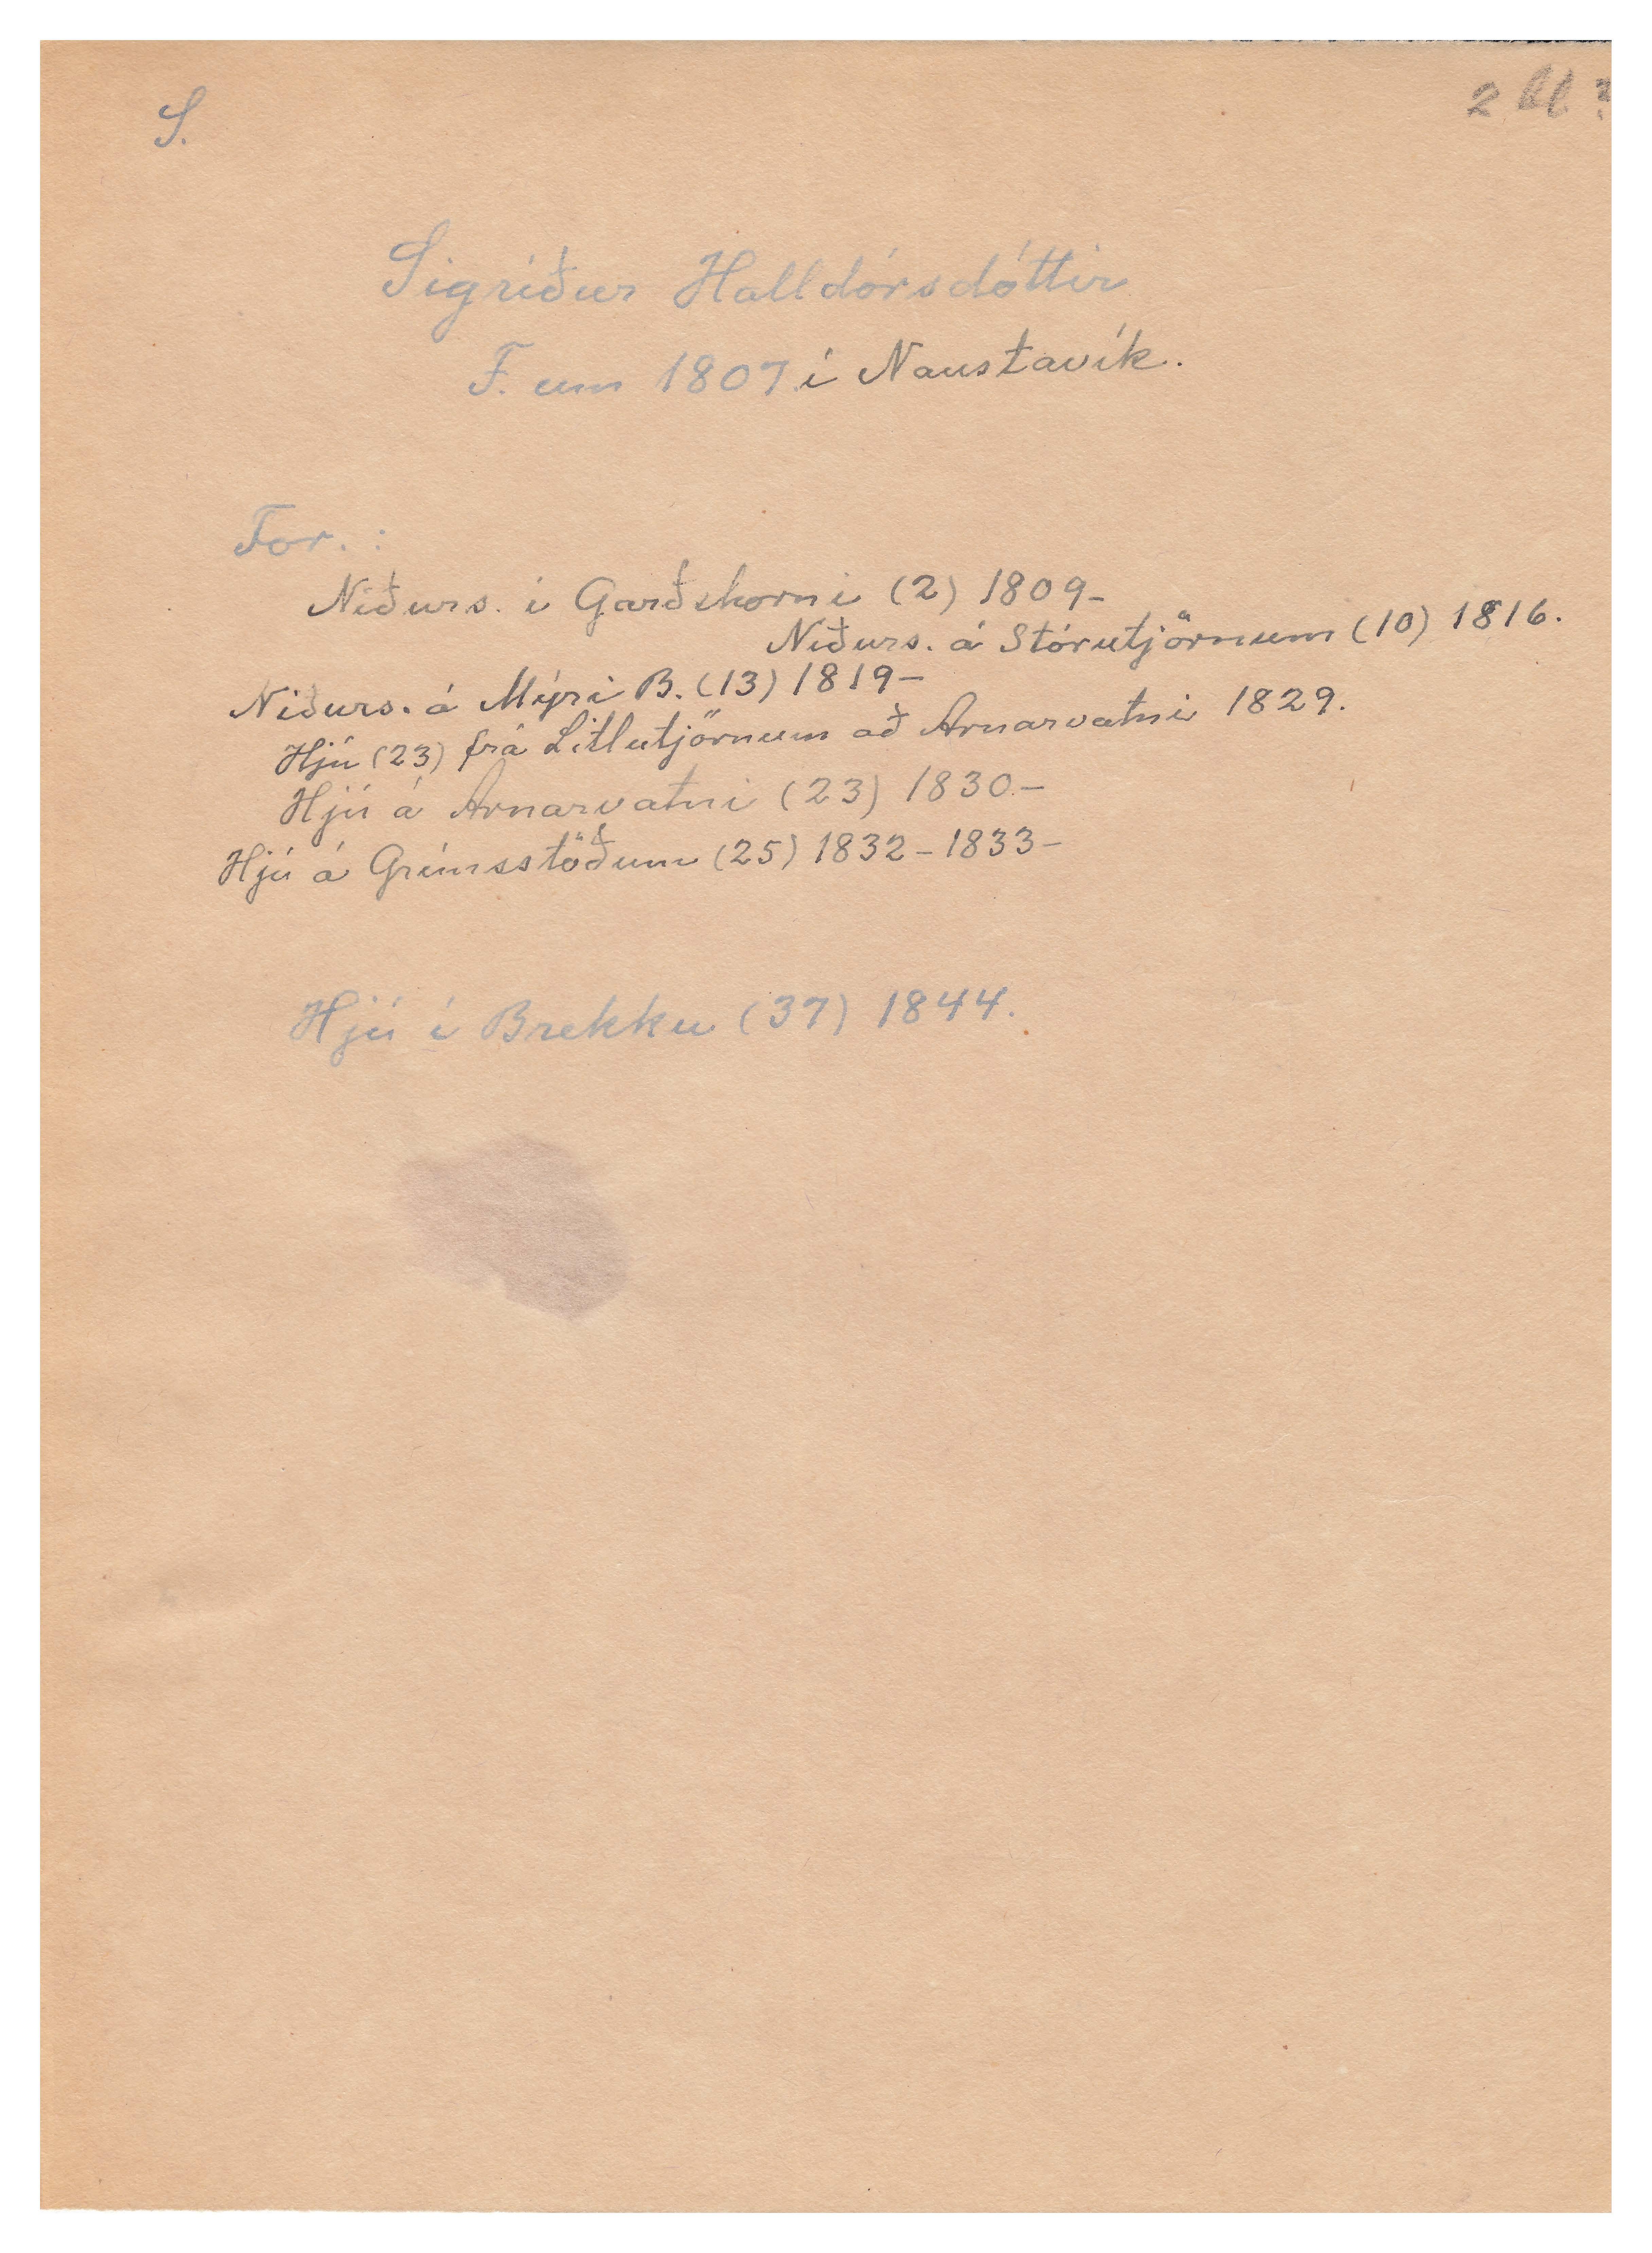 S.
2 bl ?
Sigríður Halldórsdóttir
F. um 1807 í Naustavík.
For. :
Niðurs. í Garðshorni (2) 1809-
Niðurs. á Stórutjörnum (10) 1816.
Niðurs. á Mýri B. (13) 1819-
Hjú (23) frá Litlutjörnum að Arnarvatni 1829.
Hjú á Arnarvatni (23) 1830.-
Hjú á Grímsstöðum (25) 1832-1833-
Hjú í Brekku (37) 1844.